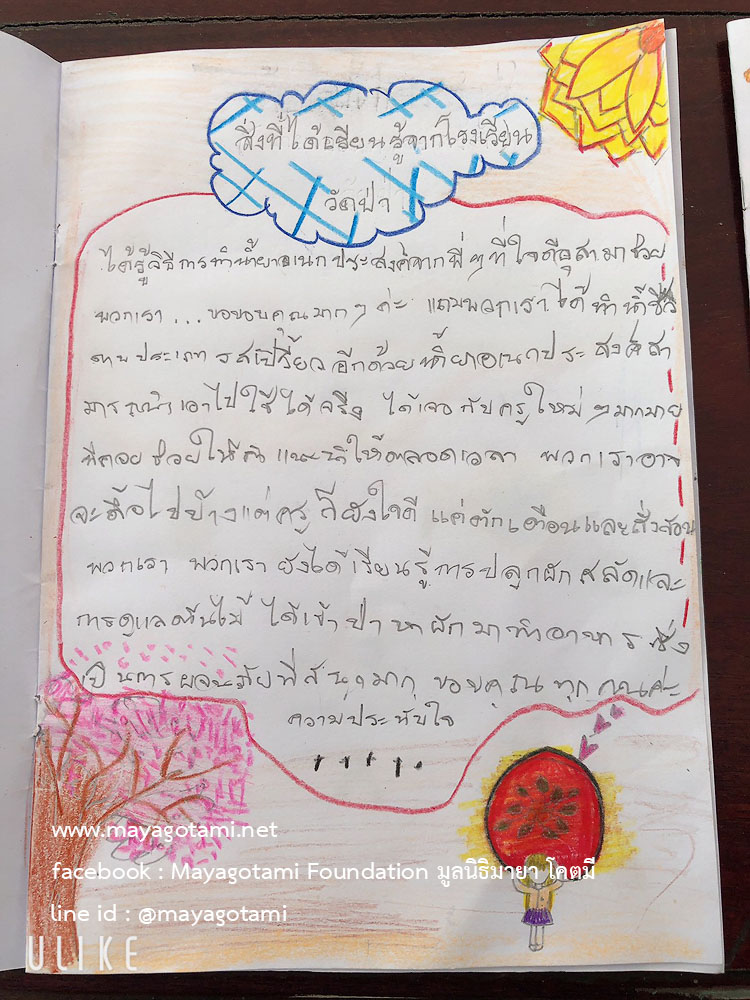 สิ่งที่ได้เรียนรู้จากโรงเรียน
วัดป่า
ได้รู้วิธีการทำน้ำยาอเนกประสงค์จากพี่ๆที่ใจดีอุสามาช่วย
พวกเรา...ขอขอบคุณมากๆค่ะ แถมพวกเราได้ทำน้ำชีวิ
ภาพประเภทรสเปรี้ยวอีกด้วยน้ำยาอเนกประสงค์สา
มารถนำเอาไปใช้ได้จริง ได้เจอกับครูใหม่ๆมากมาย
ที่คอยช่วยให้คำแนะนำให้ตลอดเวลา พวกเราอาจ
จะดื้อไปบ้างแต่ครูก็ยังใจดี แค่ตักเตือนและสั่งสอน
พวกเรา พวกเรายังได้เรียนรู้การปลูกผักสลัดและ
การดูแลต้นไม้ ได้เข้าป่าหาผักมาทำอาหารซึ่ง
เป็นการผจนภัยที่สนุกมาก ขอบคุณทุกคนค่ะ
ความประทับใจ
.....
www.mayagotami.net
facebook : Mayagotami Foundation มูลนิธิมายา โคตมี
line id : @mayagotami
ULIKE